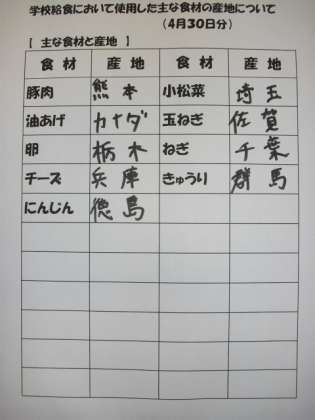 学校給食において使用した主な食材の産地について
（4月30日分）
【 主な食材と産地 】
食材 産地 食材 産地
豚肉 熊本 小松菜 埼玉
油あげ カナダ 玉ねぎ 佐賀
卵 栃木 ねぎ 千葉
チーズ 兵庫 きゅうり 群馬
にんじん 徳島